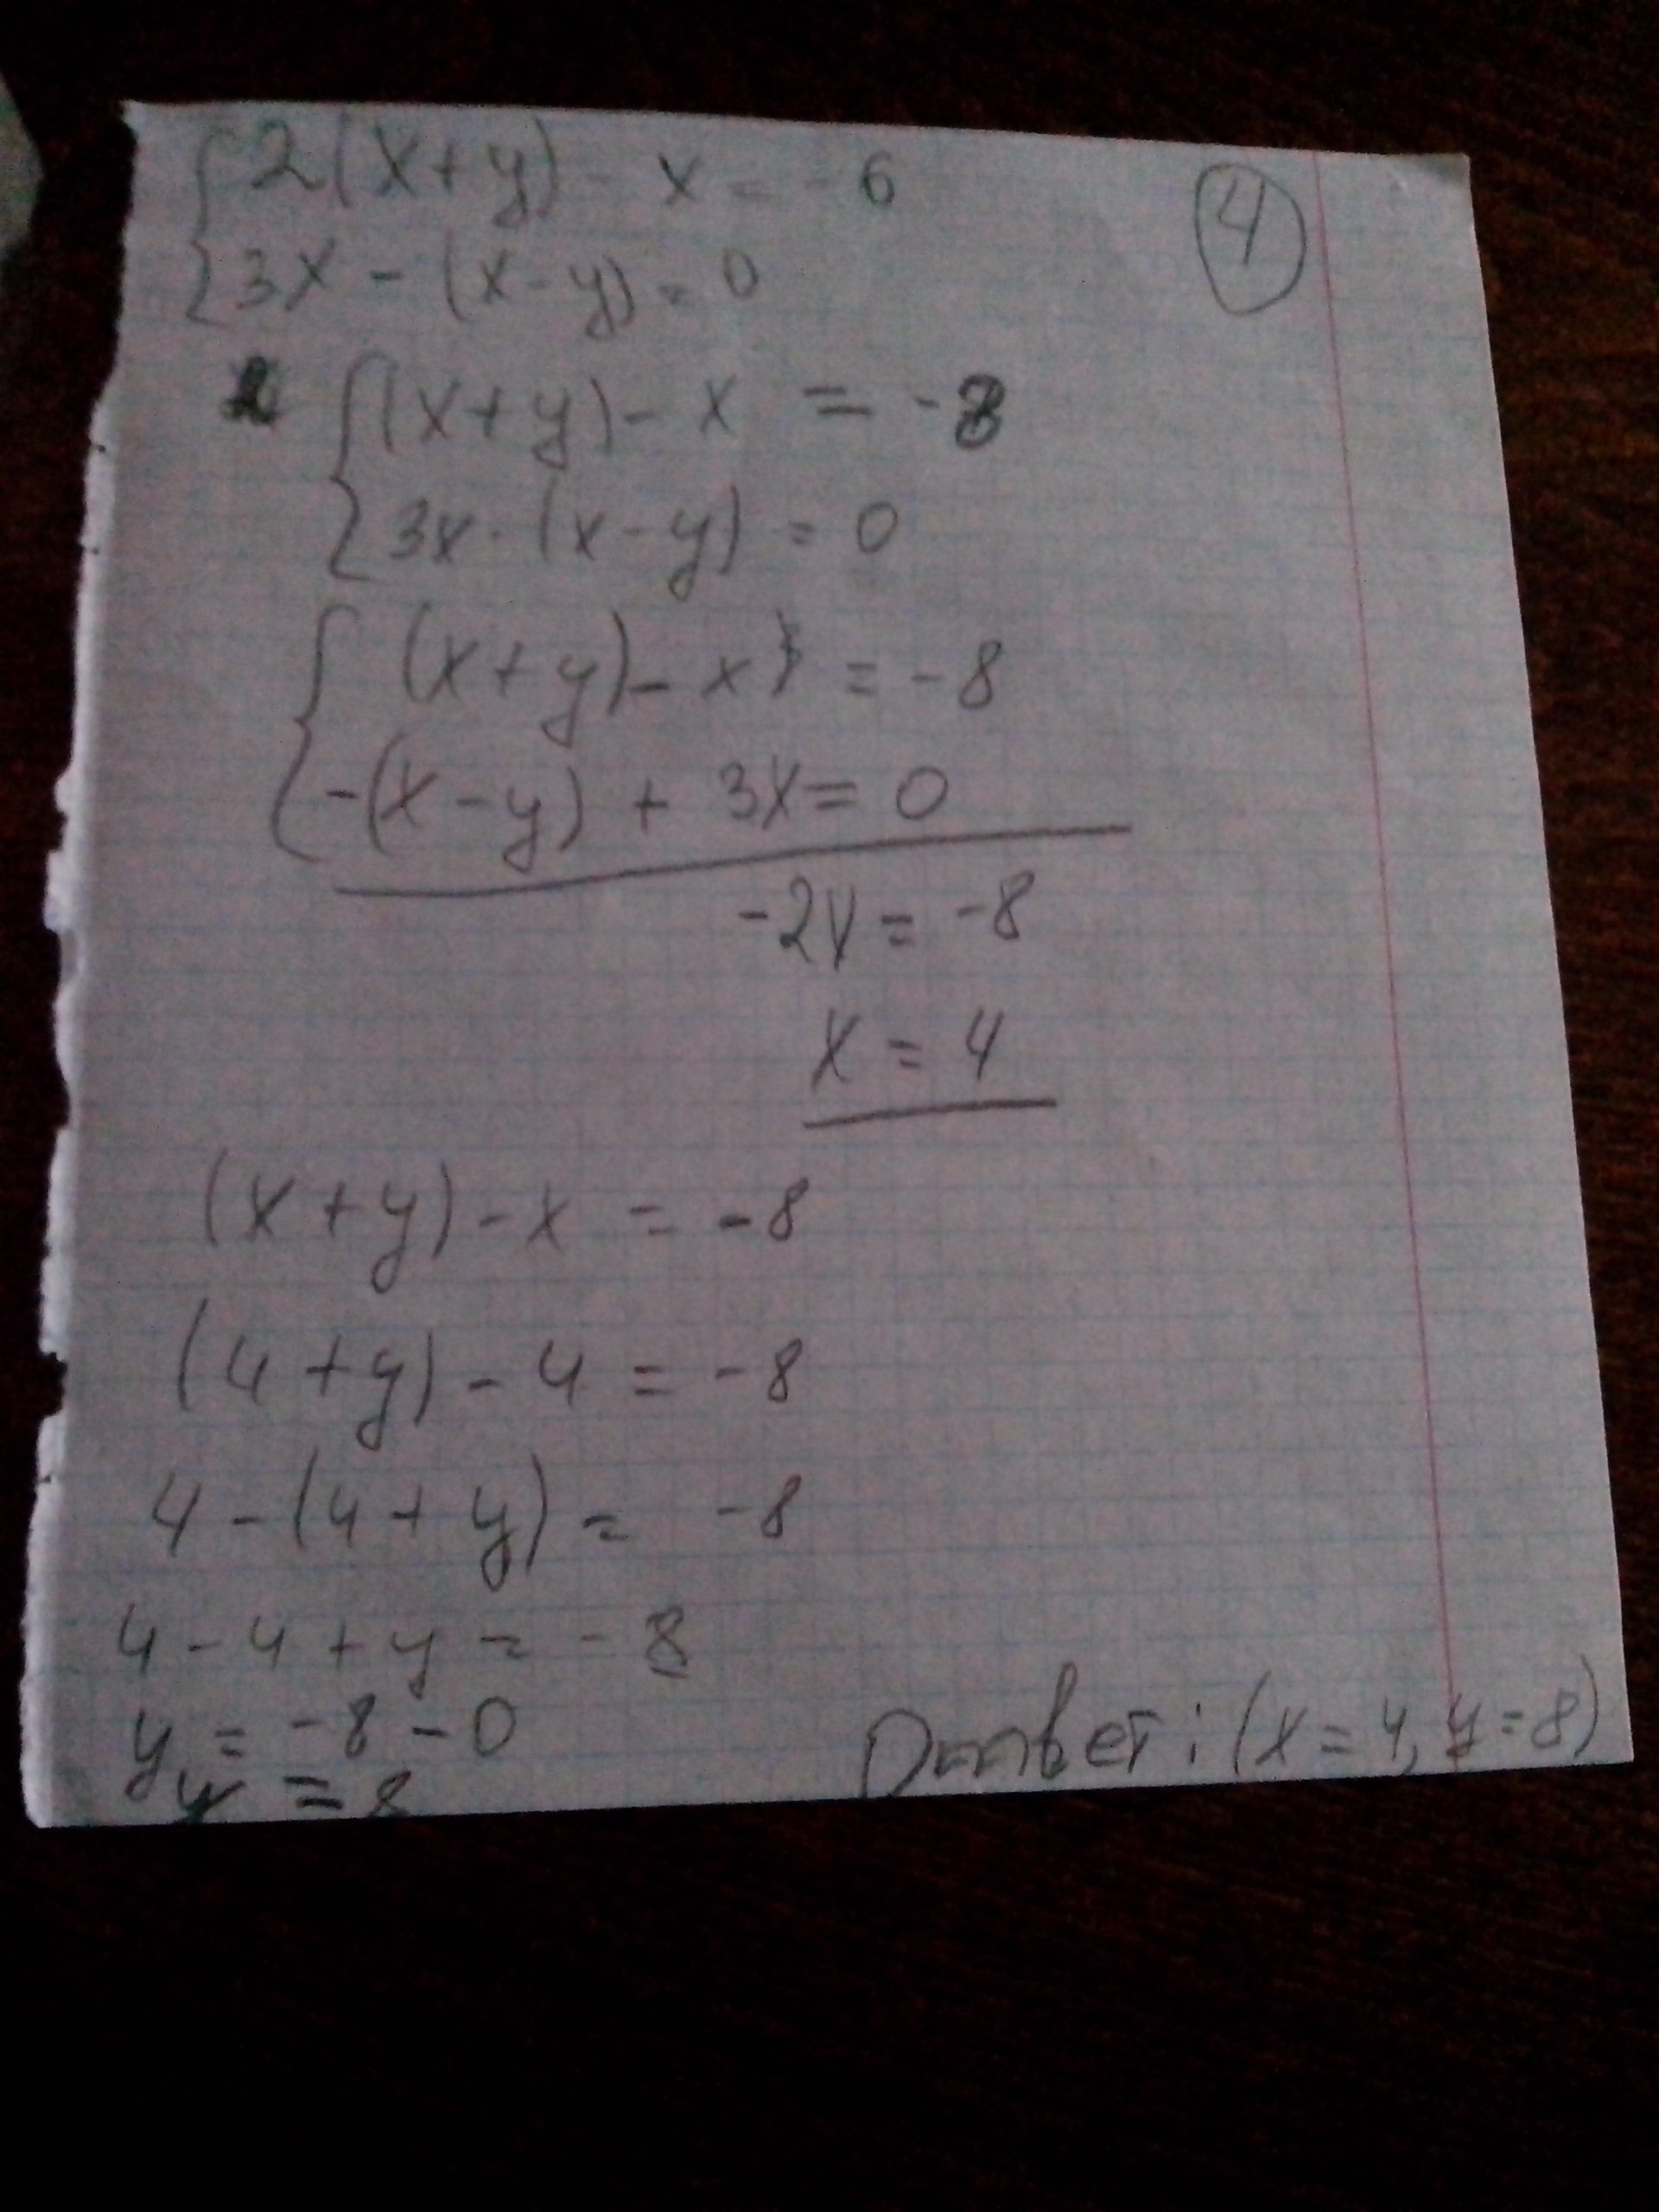 2(x+y) - x = -6
④
3x - (x-y) = 0
(x+y) - x = -8
3x - (x-y) = 0
(x+y) - x = -8
-(x-y) + 3x = 0
-2x = -8
x = 4
(x+y) - x = -8
(4+y) - 4 = -8
4 - (4+y) = -8
4 - 4 + y = -8
y = -8 - 0
y = 8
Ответ: (x = 4, y = 8)